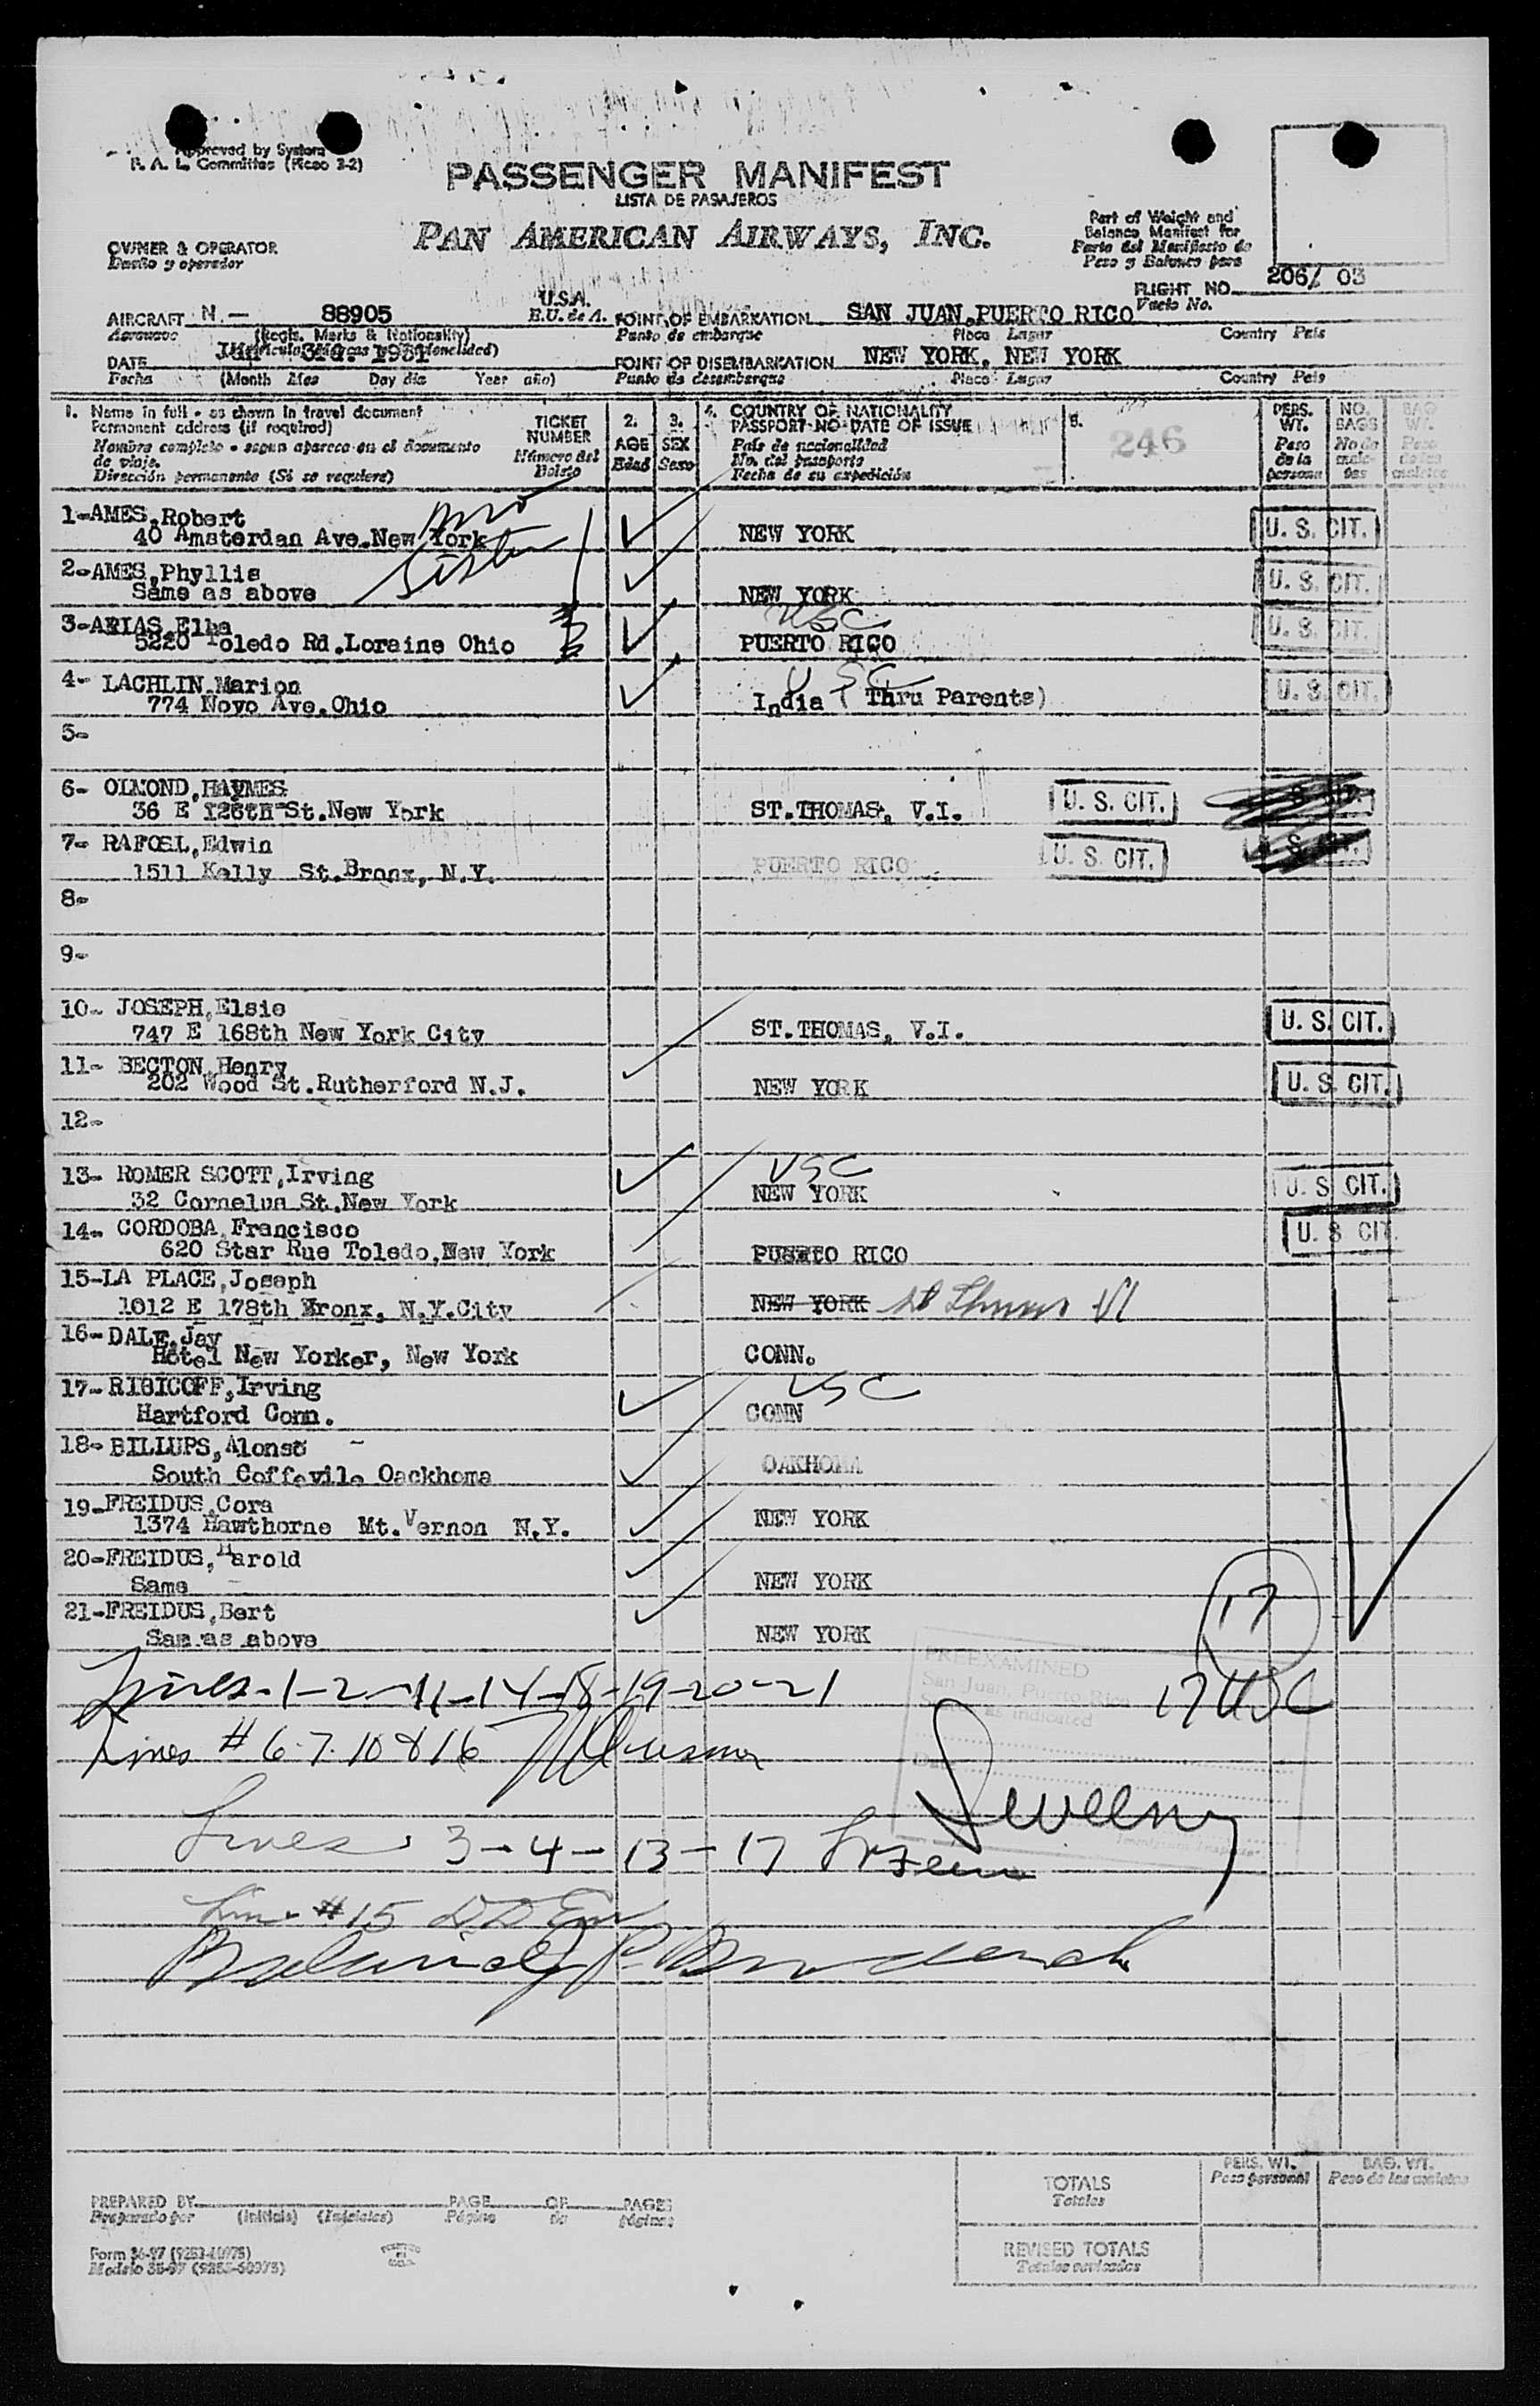 Approved by System
P. A. L. Committee (Reso 3-2)
PASSENGER MANIFEST
LISTA DE PASAJEROS
PAN AMERICAN AIRWAYS, INC.
OWNER & OPERATOR
Dueño y operador
Part of Weight and
Balance Manifest for
Parte del Manifiesto de
Peso y Balance para
FLIGHT NO. 206/ 03
Vuelo No.
AIRCRAFT N.— 88905 U.S.A.
Aeronave (Regis. Marks & Nationality) E.U. de A.
POINT OF EMBARKATION SAN JUAN, PUERTO RICO
Punto de embarque Place Lugar Country País
DATE 1951
Fecha (Month Mes Day día Year año)
POINT OF DISEMBARKATION NEW YORK, NEW YORK
Punto de desembarque Place Lugar Country País
1. Name in full - as shown in travel document
Permanent address (if required)
Nombre completo - segun aparece en el documento
de viaje.
Dirección permanente (Si se requiere)
TICKET
NUMBER
Número del
Boleto
2.
AGE
Edad
3.
SEX
Sexo
4. COUNTRY OF NATIONALITY
PASSPORT-NO-DATE OF ISSUE
País de nacionalidad
No. del pasaporte
Fecha de su expedición
5.
246
PERS.
WT.
Peso
de la
persona
NO.
BAGS
No de
male-
tas
BAG
WT.
Peso
de las
maletas
1-AMES, Robert
40 Amsterdan Ave.New York NEW YORK U. S. CIT.
sister
2-AMES, Phyllis
Same as above NEW YORK U. S. CIT.
3-ARIAS, Elba USC
5220 Toledo Rd.Loraine Ohio PUERTO RICO U. S. CIT.
4- LACHLIN, Marion USC
774 Novo Ave.Ohio India ( Thru Parents) U. S. CIT.
5-
6- OLMOND, HAYMES
36 E 126th St.New York ST.THOMAS, V.I. U. S. CIT.
7- RAFOSL, Edwin
1511 Kelly St.Bronx, N.Y. PUERTO RICO U. S. CIT.
8-
9-
10- JOSEPH, Elsie
747 E 168th New York City ST.THOMAS, V.I. U. S. CIT.
11- BECTON, Henry
202 Wood St.Rutherford N.J. NEW YORK U. S. CIT.
12-
13- ROMER SCOTT, Irving USC
32 Cornelus St.New York NEW YORK U. S. CIT.
14- CORDOBA, Francisco
620 Star Rue Toledo, New York PUERTO RICO U. S. CIT.
15-LA PLACE, Joseph
1012 E 178th Bronx, N.Y.City NEW YORK St Thomas VI
16- DALE, Jay
Hotel New Yorker, New York CONN.
17- RIBICOFF, Irving USC
Hartford Conn. CONN
18- BILLUPS, Alonso
South Coffevile Oackhoma OAKHOMA
19-FREIDUS, Cora
1374 Hawthorne Mt.Vernon N.Y. NEW YORK
20-FREIDUS, Harold
Same NEW YORK
21-FREIDUS, Bert
Sam as above NEW YORK
17
Lines-1-2-11-14-18-19-20-21 17 USC
PREEXAMINED
San Juan, Puerto Rico
as indicated
Lines # 6-7-10 & 16
Sweeny
Lines 3-4-13-17
Line #15
PREPARED BY PAGE OF PAGES
Preparado por (Initials) (Iniciales) Página de páginas
TOTALS
Totales
PERS. WT.
Peso personal
BAG. WT.
Peso de las maletas
REVISED TOTALS
Totales revisados